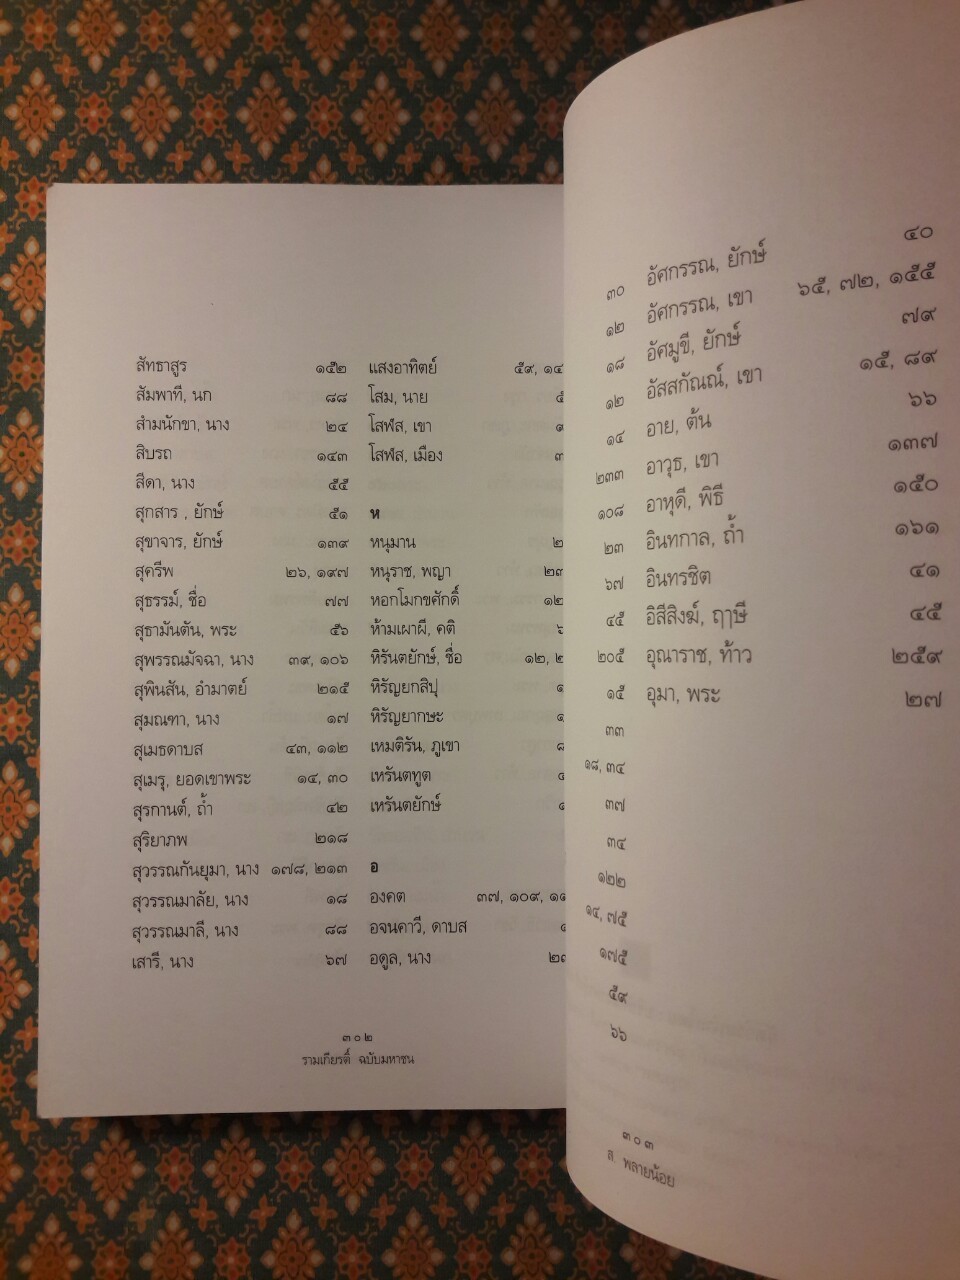 สัทธาสูร ๑๕๒
สัมพาที, นก ๘๘
สำมนักขา, นาง ๒๔
สิบรถ ๑๔๓
สีดา, นาง ๕๕
สุกสาร , ยักษ์ ๕๑
สุขาจาร, ยักษ์ ๑๓๙
สุครีพ ๒๖, ๑๙๗
สุธรรม์, ชื่อ ๗๗
สุธามันตัน, พระ ๕๖
สุพรรณมัจฉา, นาง ๓๙, ๑๐๖
สุพินสัน, อำมาตย์ ๒๑๕
สุมณฑา, นาง ๑๗
สุเมธดาบส ๔๓, ๑๑๒
สุเมรุ, ยอดเขาพระ ๑๔, ๓๐
สุรกานต์, ถ้ำ ๔๒
สุริยาภพ ๒๑๘
สุวรรณกันยุมา, นาง ๑๗๘, ๒๑๓
สุวรรณมาลัย, นาง ๑๘
สุวรรณมาลี, นาง ๘๘
เสารี, นาง ๖๗
แสงอาทิตย์ ๕๙,
โสม, นาย
โสฬส, เขา
โสฬส, เมือง
ห
หนุมาน
หนุราช, พญา
หอกโมกขศักดิ์
ห้ามเผาผี, คติ
หิรันตยักษ์, ชื่อ ๑๒,
หิรัญยกสิปุ
หิรัญยากษะ
เหมติรัน, ภูเขา
เหรันตทูต
เหรันตยักษ์
อ
องคต ๓๗, ๑๐๙,
อจนคาวี, ดาบส
อดูล, นาง
๓๐๒
รามเกียรติ์ ฉบับมหาชน
๓๐
๑๒
๑๘
๑๒
๑๔
๒๓๓
๑๐๘
๒๓
๖๗
๔๕
๒๐๕
๑๕
๓๓
๑๘, ๓๔
๓๗
๓๔
๑๒๒
๑๔, ๗๕
๑๗๕
๕๙
๖๖
อัศกรรณ, ยักษ์ ๔๐
อัศกรรณ, เขา ๖๕, ๗๒, ๑๕๕
อัศมูขี, ยักษ์ ๗๙
อัสสกัณณ์, เขา ๑๕, ๘๙
อาย, ต้น ๖๖
อาวุธ, เขา ๑๓๗
อาหุดี, พิธี ๑๕๐
อินทกาล, ถ้ำ ๑๖๑
อินทรชิต ๔๑
อิสีสิงฆ์, ฤๅษี ๔๕
อุณาราช, ท้าว ๒๕๙
อุมา, พระ ๒๗
๓๐๓
ส. พลายน้อย